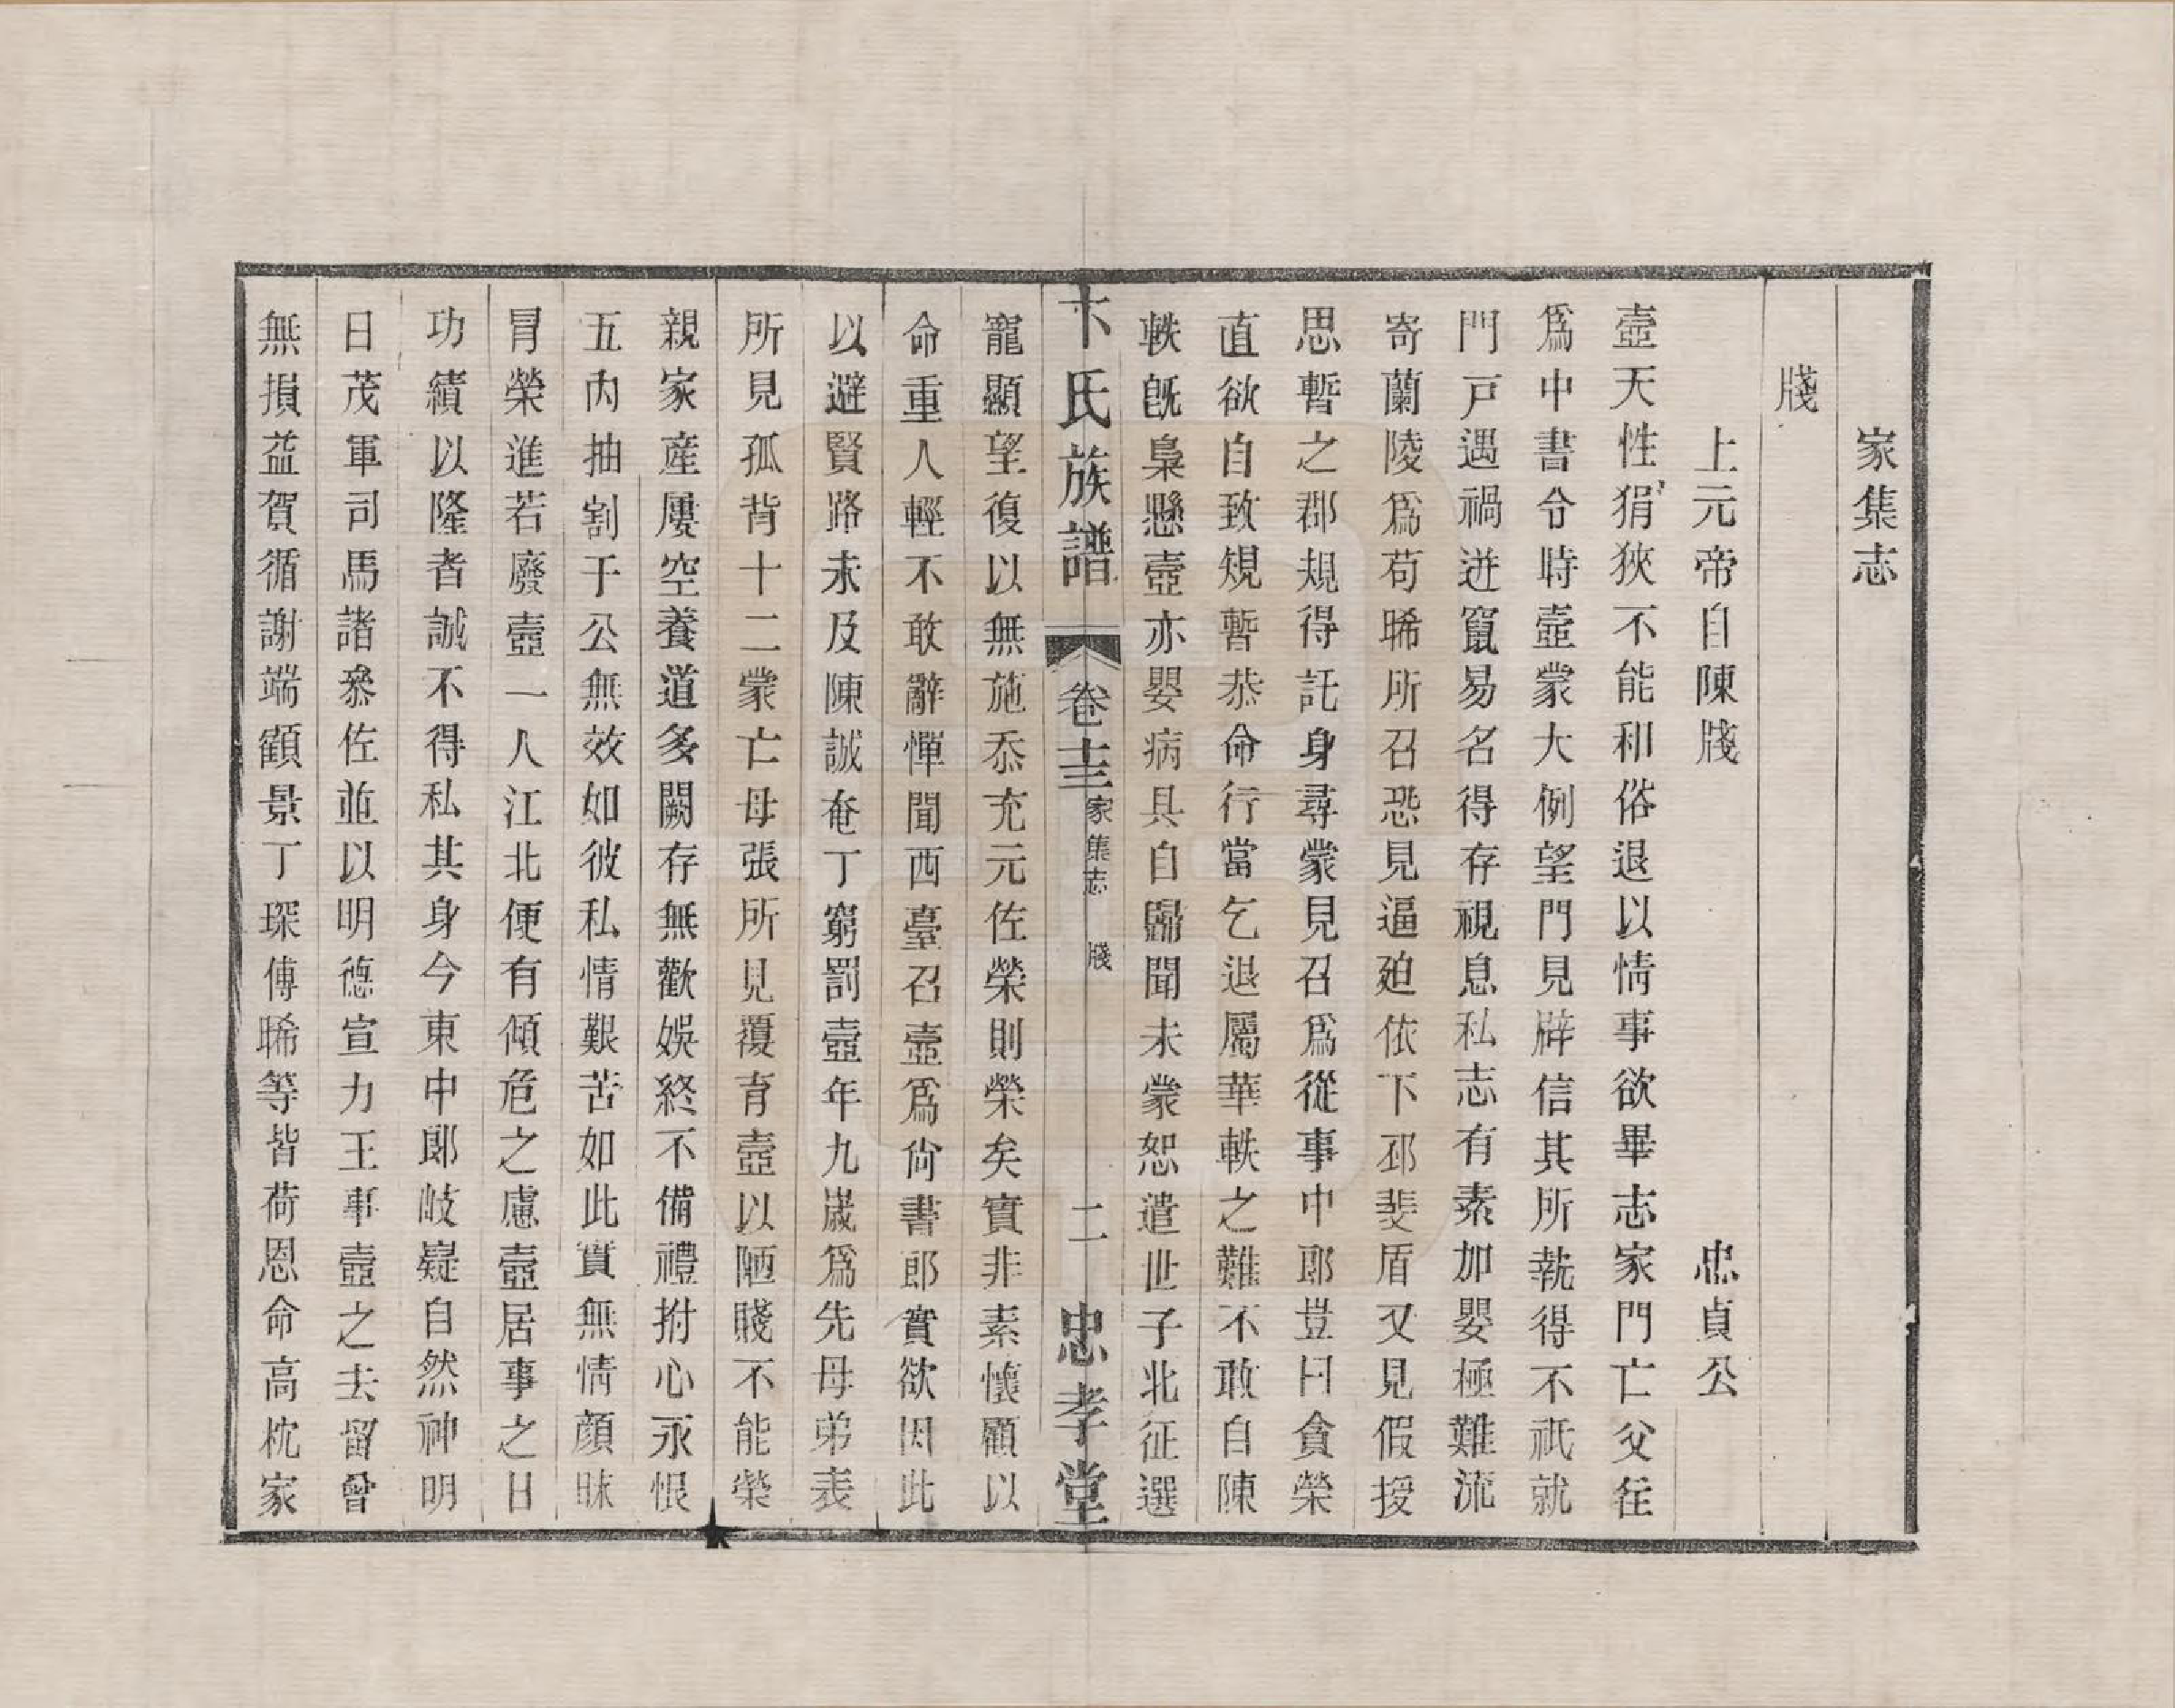 家集志
牋
上元帝自陳牋 忠貞公
壼天性狷狹不能和俗退以情事欲畢志家門亡父往
爲中書令時壼蒙大例望門見辟信其所執得不祇就
門戸遇禍迸竄易名得存視息私志有素加嬰極難流
寄蘭陵爲苟晞所召恐見逼廹依下邳裴盾又見假授
思暫之郡規得託身尋蒙見召爲從事中郎豈曰貪榮
直欲自致規暫恭命行當乞退屬華軼之難不敢自陳
軼旣梟懸壼亦嬰病具自歸聞未蒙恕遣世子北征選
卞氏族譜 卷十三 家集志 牋 二 忠孝堂
寵顯望復以無施忝充元佐榮則榮矣實非素懷顧以
命重人輕不敢辭憚聞西臺召壼爲尙書郎實欲因此
以避賢路未及陳誠奄丁窮罰壼年九歲爲先母弟表
所見孤背十二蒙亡母張所見覆育壼以陋賤不能榮
親家產屢空養道多闕存無歡娛終不備禮拊心永恨
五內抽割于公無效如彼私情艱苦如此實無情顏昧
冒榮進若廢壼一人江北便有傾危之慮壼居事之日
功績以隆者誠不得私其身今東中郎岐嶷自然神明
日茂軍司馬諸叅佐並以明德宣力王事壼之去留曾
無損益賀循謝端顧景丁琛傅晞等皆荷恩命高枕家